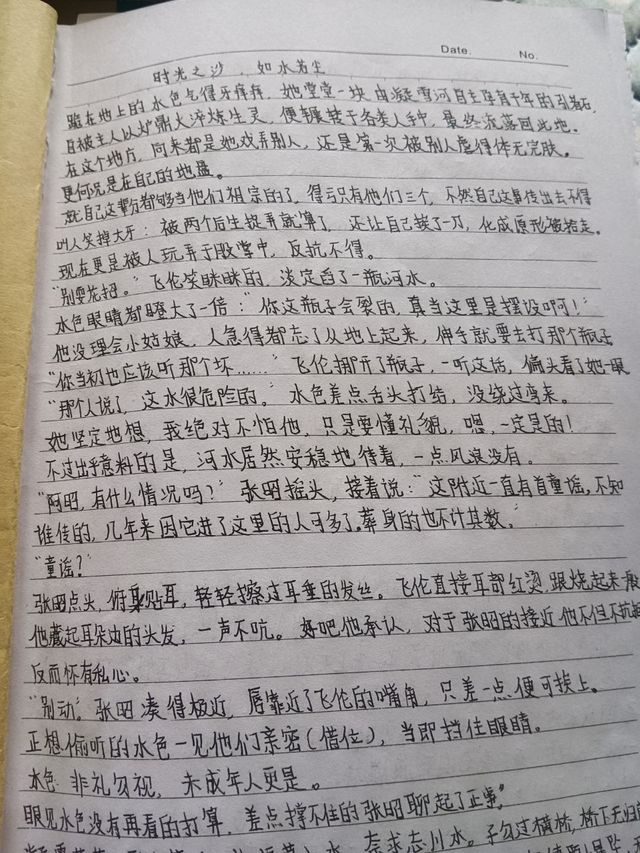 Date. No.
时光之沙，如水若尘
跪在地上的水色气得牙痒痒，她堂堂一块由凝雪河自主孕育千年的引渚石，
日被主人以炉鼎火淬炼生灵，便辗转于各类人手中，最终流落回此地。
在这个地方，向来都是她戏弄别人，还是第一次被别人虐得体无完肤。
更何况是在自己的地盘。
就自己这辈分都够当他们祖宗的了，得亏只有他们三个，不然自己这事传出去不得
叫人笑掉大牙：被两个后生捉弄就算了，还让自己挨了一刀，化成原形被掐走。
现在更是被人玩弄于股掌中，反抗不得。
“别耍花招。”飞伦笑眯眯的，淡定舀了一瓶河水。
水色眼睛都瞪大了一倍：“你这瓶子会裂的，真当这里是摆设啊！”
他没理会小姑娘，人急得都忘了从地上起来，伸手就要去打那个瓶子
“你当初也应该听那个坏……”飞伦掰开了瓶子，一听这话，偏头看了她一眼
“那个人说了，这水很危险的。”水色差点舌头打结，没绕过弯来。
她坚定地想，我绝对不怕他，只是要懂礼貌，嗯，一定是的！
不过出乎意料的是，河水居然安稳地待着，一点风浪没有。
“阿昭，有什么情况吗？”张昭摇头，接着说：“这附近一直有首童谣，不知
谁传的，几年来因它进了这里的人可多了，葬身的也不计其数。”
“童谣？”
张昭点头，俯身贴耳，轻轻擦过耳垂的发丝。飞伦直接耳部红烫，跟烧起来般
他藏起耳朵边的头发，一声不吭。好吧他承认，对于张昭的接近他不但不抗拒
反而怀有私心。
“别动。”张昭凑得极近，唇靠近了飞伦的嘴角，只差一点便可挨上。
正想偷听的水色一见他们亲密（借位），当即挡住眼睛。
水色：非礼勿视，未成年人更是。
眼见水色没有再看的打算，差点撑不住的张昭聊起了正事。
水，奈求忘川水。子勿过横桥，桥下无归